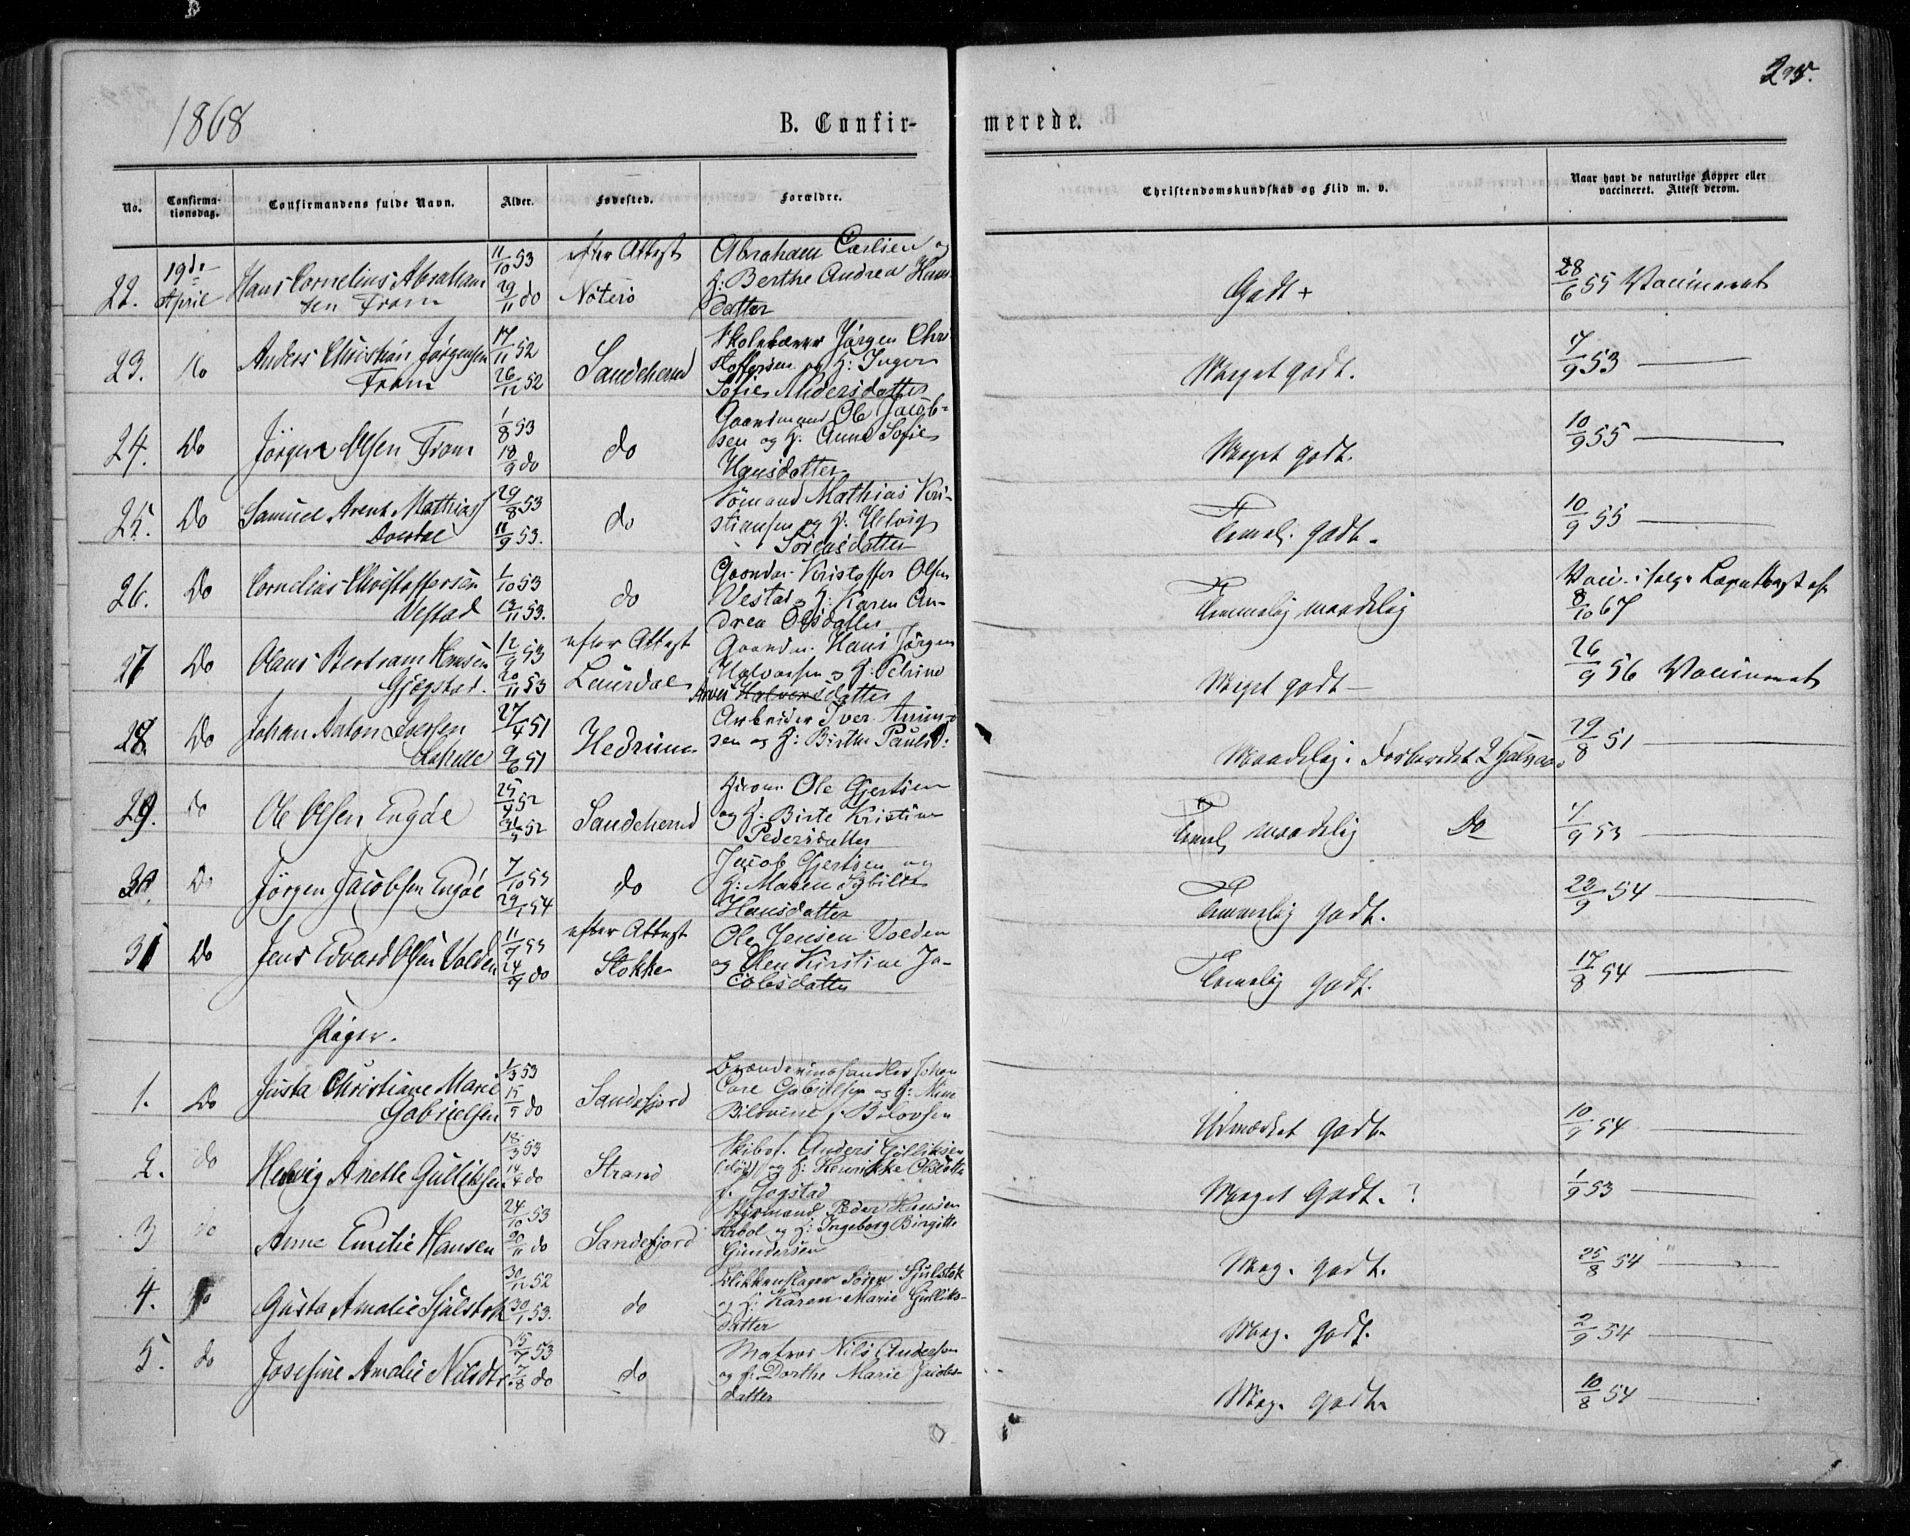 1868
B. Confir-
merede.
No.
Confirma-
tionsdag.
Confirmandens fulde Navn.
Alder.
Fødested.
Forældre.
Christendomskundskab og Flid m. v.
Naar havt de naturlige Kopper eller
vaccineret. Attest derom.
22. 19de April Hans Cornelius Abraham
sen Fram 11/10 53 29/11 do efter Attest
Nøterø Abraham Carlsen og
H: Berthe Andrea Hans
datter Godt + 28/6 55 Vaccineret
23. Do Anders Christian Jørgensen
Fram 17/11 52 26/12 52 Sandeherred Skolelærer Jørgen Chri
stoffersen og H: Inger
Sofie Andersdatter Meget godt. 7/9 53 —
24. Do Jørgen Olsen Fram 1/8 53 18/9 do do Gaardmand Ole Jacob-
sen og H. Anne Sofie
Hansdatter Meget godt. 10/9 55 —
25. Do Samuel Arent Mathias
29/8 53 11/9 53. do Sømand Mathias Kri-
stiansen og H. Helvig
Sørensdatter Temel. godt. 10/9 55 —
26. Do Cornelius Christoffersen
Vestad 1/10 53 13/11 53. do Gaardm. Kristoffer Olsen
Vestad og H. Karen An-
drea Olsdatter Temmelig maadelig Vacc. i følge Lægeattest af
8/10 67
27 Do Olaus Bertram Hansen
Gjøgstad. 12/9 53 20/11 53 efter Attest
Laurdal Gaardm. Hans Jørgen
Halvorsen og H: Petrine
Halvorsdatter Meget godt — 26/9 56 Vaccineret
28. Do Johan Anton Iversen
27/4 51 9/6 51 Hedrum Arbeider Iver
sen og H: Birthe Paulsd: Maadelig. Forberedet 2 Halvaar 29/8 51 —
29. do Ole Olsen Engøe 25/4 52 31/5 52 Sandeherred Ole Gjertsen
og H. Birte Kristine
Pedersdatter Temel maadelig Do 1/9 53 —
30. Do Jørgen Jacobsen Engøe 7/10 53 29/1 54 do Jacob Gjertsen og
H: Maren Sybille
Hansdatter Temmelig godt. 22/9 54 —
31 Do Jens Edvard Olsen Volden 11/7 53 24/9 do efter Attest
Stokke Ole Jensen Volden
og Elen Kirstine Ja-
cobsdatter Temelig godt. 17/8 54 —
Piger.
1. Do Justa Christiane Marie
Gabrielsen 1/3 53 15/5 do Sandefjord Brændevinshandler Johan
Carl Gabrielsen og H: Mine
Udmærket godt. 10/9 54
2. do Helvig Anette Gulliksen 18/3 53 14/4 do Strand Skibsf. Anders Gulliksen
og H: Henrikke Olsdatter
f. Jogstad Meget Godt. ? 1/9 53 —
3 do Anne Emilie Hansen 24/10 53 20/11 do Sandefjord Styrmand Peder Hansen
og H: Ingeborg Birgitte
Gundersen Meg. godt. 25/8 54 "
4. do Gusta Amalie Sjulstok 30/12 52 30/1 53. do Blikkenslager Søren Sjulstok
og H: Karen Marie Gulliks-
datter Meg. godt. 2/9 54 —
5. do Josefine Amalie Nilsdtr. 15/7 53 7/8 do do Matros Nils Andersen
og H: Dorthe Marie Jacobs-
datter Meg. godt. 10/8 54 —